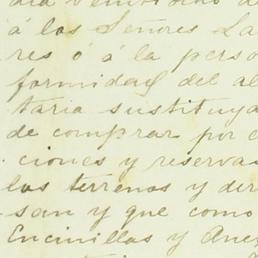 dia veintidos d
á los Señores La
res ó á la perso
formidad del al
taria sustituya
de comprar por c
ciones y reservas
los terrenos y der
san y que como
Encinillas y Anex